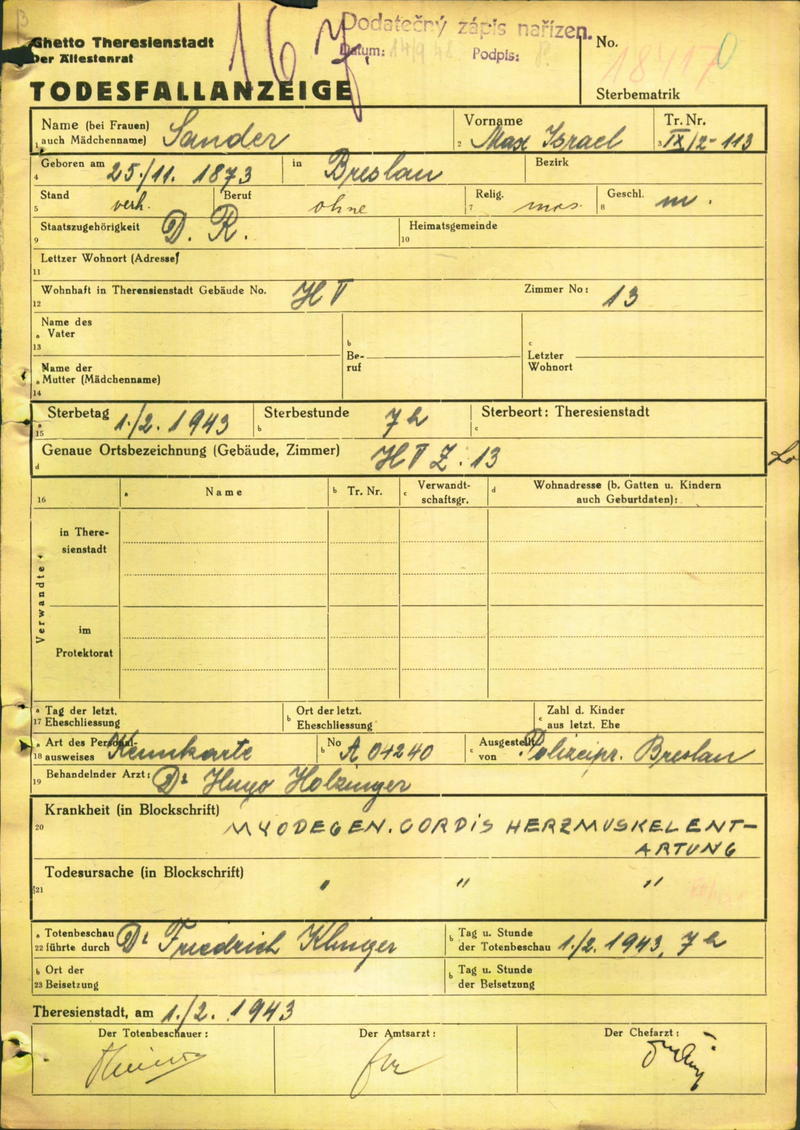 Ghetto Theresienstadt
Der Ältestenrat
Dodatečný zápis nařízen.
Datum: Podpis:
No.
TODESFALLANZEIGE
Sterbematrik
Name (bei Frauen) auch Mädchenname) Sander
1
Vorname Max Israel
2
Tr. Nr. IX/2-113
3
Geboren am 25./11. 1873 in Breslau Bezirk
4
Stand verh. Beruf ohne Relig. mos. Geschl. m.
5 7 8
Staatszugehörigkeit D. R. Heimatsgemeinde
9 10
Lettzer Wohnort (Adresse)
11
Wohnhaft in Therensienstadt Gebäude No. H V Zimmer No: 13
12
Name des
a Vater
13
b Beruf
c Letzter Wohnort
Name der
a Mutter (Mädchenname)
14
Sterbetag 1./2. 1943 Sterbestunde 7h Sterbeort: Theresienstadt
a 15 b c
Genaue Ortsbezeichnung (Gebäude, Zimmer) H V Z. 13
d
16 a Name b Tr. Nr. c Verwandt-schaftsgr. d Wohnadresse (b. Gatten u. Kindern auch Geburtdaten):
Verwandte
in There-
sienstadt
im
Protektorat
a Tag der letzt.
17 Eheschliessung
b Ort der letzt.
Eheschliessung
c Zahl d. Kinder
aus letzt. Ehe
a Art des Personal-
18 ausweises Kennkarte
b No A 01240
c Ausgestellt
von Polizeipr. Breslau
19 Behandelnder Arzt: Dr Hugo Holzinger
Krankheit (in Blockschrift)
20 MYODEGEN. CORDIS HERZMUSKELENT-
ARTUNG
Todesursache (in Blockschrift)
21 " " "
a Totenbeschau
22 führte durch Dr Friedrich Klinger
b Tag u. Stunde
der Totenbeschau 1./2. 1943, 7h
b Ort der
23 Beisetzung
b Tag u. Stunde
der Beisetzung
Theresienstadt, am 1./2. 1943
Der Totenbeschauer: Der Amtsarzt: Der Chefarzt: